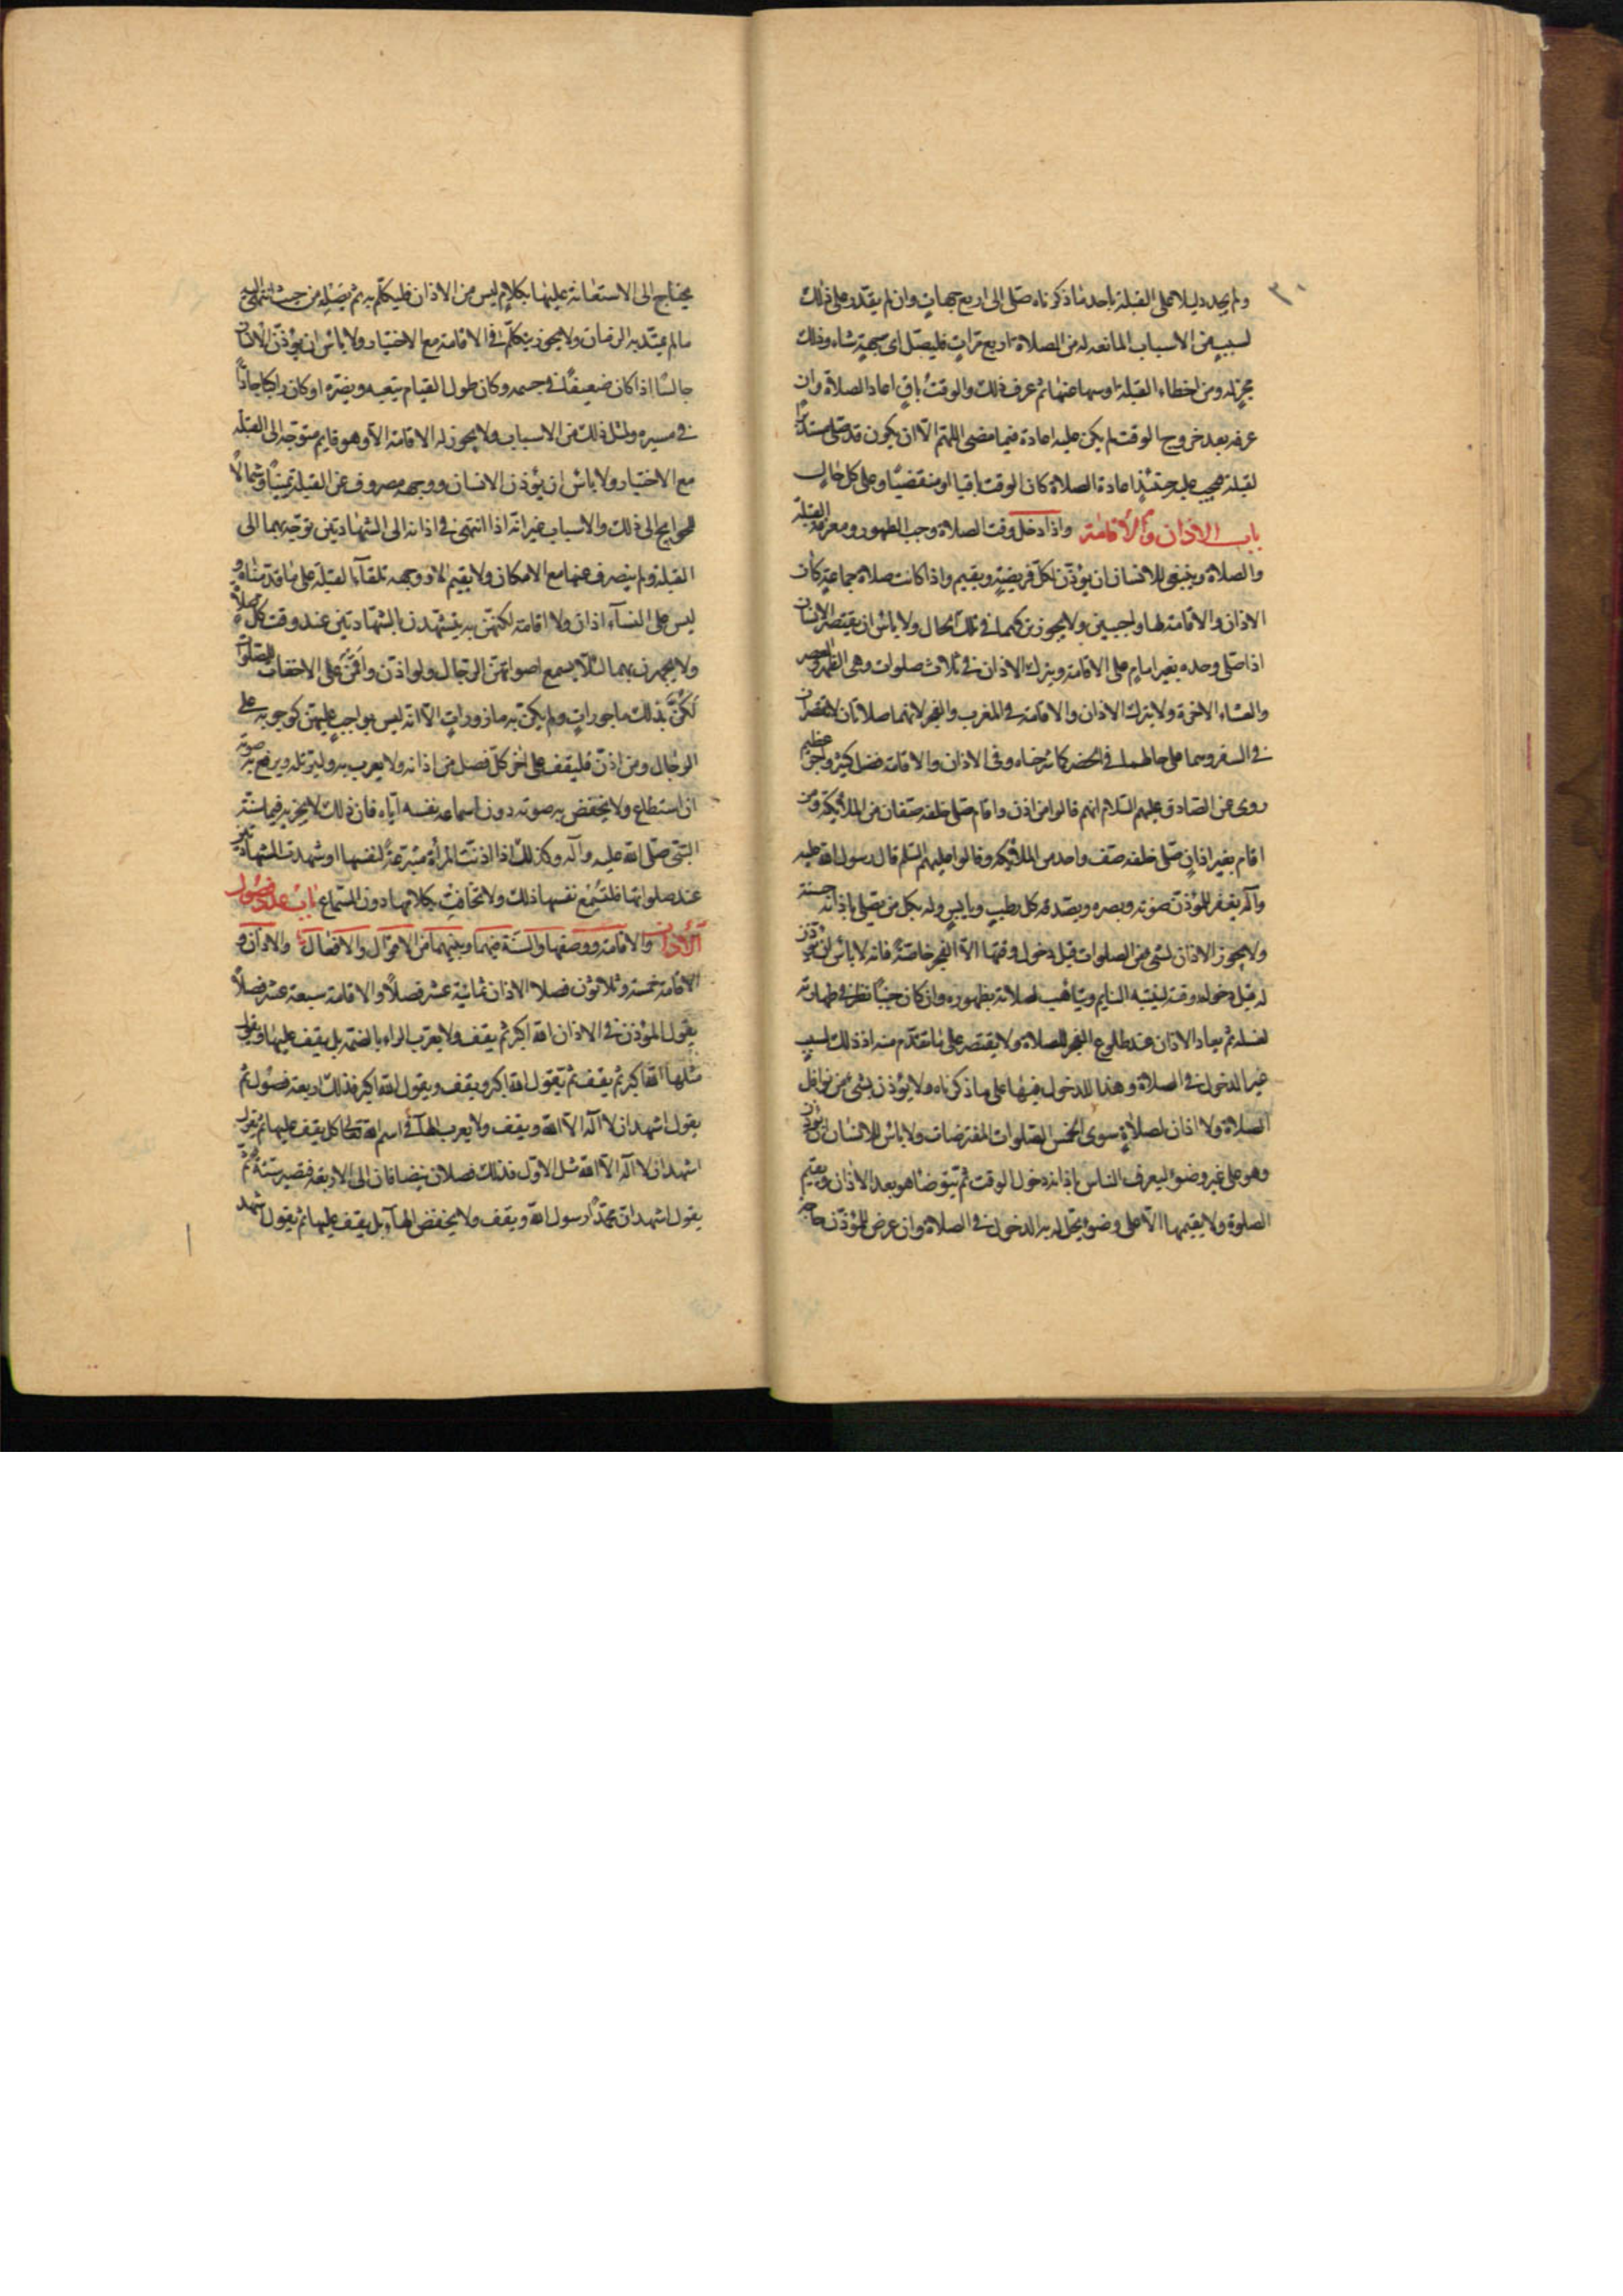 ٣٠
ولم يجد دليلا على القبلة باحد ما ذكرناه صلى الى اربع جهات وان لم يقدر على ذلك
لسبب من الاسباب المانعه له من الصلاة اربع مرات فليصل اى جهة شاء وذلك
مجز له ومن اخطاء القبلة او سها عنها ثم عرف ذلك والوقت باق اعاد الصلاة وان
عرفه بعد خروج الوقت لم يكن عليه اعادة فيما مضى اللهم الّا ان يكون قد صلى مستدبرا
لقبلة فيجب عليه حينئذ اعادة الصلاة كان الوقت باقيا او منقضيا وعلى كل حال
باب الاذان والاقامة واذا دخل وقت الصلاة وجب الطهور ومعرفة القبلة
والصلاة وينبغى للانسان ان يؤذّن لكل فريضة ويقيم واذا كانت صلاة جماعة كان
الاذان والاقامة لها واجبين ولا يجوز تركهما فى تلك الحال ولا باس ان يقتصر الانسان
اذا صلى وحده بغير امام على الاقامة ويترك الاذان فى ثلاث صلوات وهى الظهر والعصر
والعشاء الاخرة ولا يترك الاذان والاقامة فى المغرب والفجر لانهما صلاتان لا تقصران
فى السفر وهما على حالهما فى الحضر وفى الاذان والاقامة فضل كثير واجر عظيم
روى عن الصادقين عليهم السلام انهم قالوا من اذن واقام صلى خلفه صفان من الملائكة ومن
اقام بغير اذان صلى خلفه صف واحد من الملائكه وقالوا عليهم السلم قال رسول الله صلى الله عليه
وآله يغفر للمؤذن صوته وبصره ويصدقه كل رطب ويابس وله بكل من يصلى باذانه حسنة
ولا يجوز الاذان لشئ من الصلوات قبل دخول وقتها الّا الفجر خاصّة فانه لا باس ان يؤذن
له قبل دخول وقته لينتبه النايم ويتأهب لصلاته بطهوره وان كان جنبا نظر فى طهارته
لغسله ثم يعاد الاذان عند طلوع الفجر للصلاة ولا يقتصر على ما تقدم منه اذ ذلك لسبب
غير الدخول فى الصلاة وهذا للدخول فيها على ما ذكرناه ولا يؤذن لشئ من نوافل
الصلاة ولا اذان لصلاة سوى الخمس الصلوات المفترضات ولا باس للانسان ان يؤذن
وهو على غير وضوء ليعرف الناس باذانه دخول الوقت ثم يتوضأ هو بعد الاذان ويقيم
الصلوة ولا يقيمها الّا على وضوء يحل له به الدخول فى الصلاة وان عرض للمؤذن حاجة
يحتاج الى الاستعانة عليها بكلام ليس من الاذان فليتكلم به ثم يصله من حيث انتهى اليه
ما لم يمتد به الزمان ولا يجوز يتكلم فى الاقامة مع الاختيار ولا باس ان يؤذن الانسان
جالسا اذا كان ضعيفا فى جسمه وكان طول القيام يتعبه ويضره او كان راكبا جادّا
فى مسيره ولمثل ذلك من الاسباب ولا يجوز له الاقامة الّا وهو قايم متوجه الى القبلة
مع الاختيار ولا باس ان يؤذن الانسان ووجهه مصروف عن القبلة يمينا وشمالا
للحوايج الى ذلك والاسباب غير انه اذا انتهى فى اذانه الى الشهادتين توجه بهما الى
القبلة ولم ينصرف عنها مع الامكان ولا يقيم الّا ووجهه تلقاء القبلة على ما قدمناه و
ليس على النسآء اذان ولا اقامة لكنهن يتشهدن بالشهادتين عند وقت كل صلاة
ولا يجهرن بهما لئلّا يسمع اصواتهن الرجال ولو اذنّ واقمن على الاخفات للصلوات
لكنّ بذلك ماجورات ولم يكن به مازورات الّا انه ليس بواجب عليهن كوجوبه على
الرجال ومن اذن فليقف على اخر كل فصل من اذانه ولا يعرب به وليرتله ويرفع به صوته
ان استطاع ولا يخفض به صوته دون اسماعه نفسه ايّاه فان ذلك لا يجزيه فيما سنّه
النبى صلى الله عليه وآله وكذلك اذا اذنت المرأة متبرعة لنفسها او شهدت الشهادتين
عند صلواتها فلتسمع نفسها ذلك ولا تخافت بكلامها دون السماع باب عدد فصول
الاذان والاقامة ووصفهما والسنّة فيهما وبينهما من الاقوال والافعال والاذان و
الاقامة خمسة وثلاثون فصلا الاذان ثمانية عشر فصلا والاقامة سبعة عشر فصلا
يقول المؤذن فى الاذان الله اكبر ثم يقف ولا يعرب الراء بالضمة بل يقف عليها ويقول
مثلها الله اكبر ثم يقف ثم يقول الله اكبر ويقف ويقول الله اكبر فذلك اربعة فصول ثم
يقول اشهد ان لا اله الّا الله ويقف ولا يعرب الهآء فى اسم الله تعالى لكل يقف عليها ثم يقول
اشهد ان لا اله الّا الله مثل الاول فذلك فصلان ينضافان الى الاربعة فتصير ستة ثم
يقول اشهد ان محمّدا رسول الله ويقف ولا يخفض الهاء بل يقف عليها ثم يقول اشهد